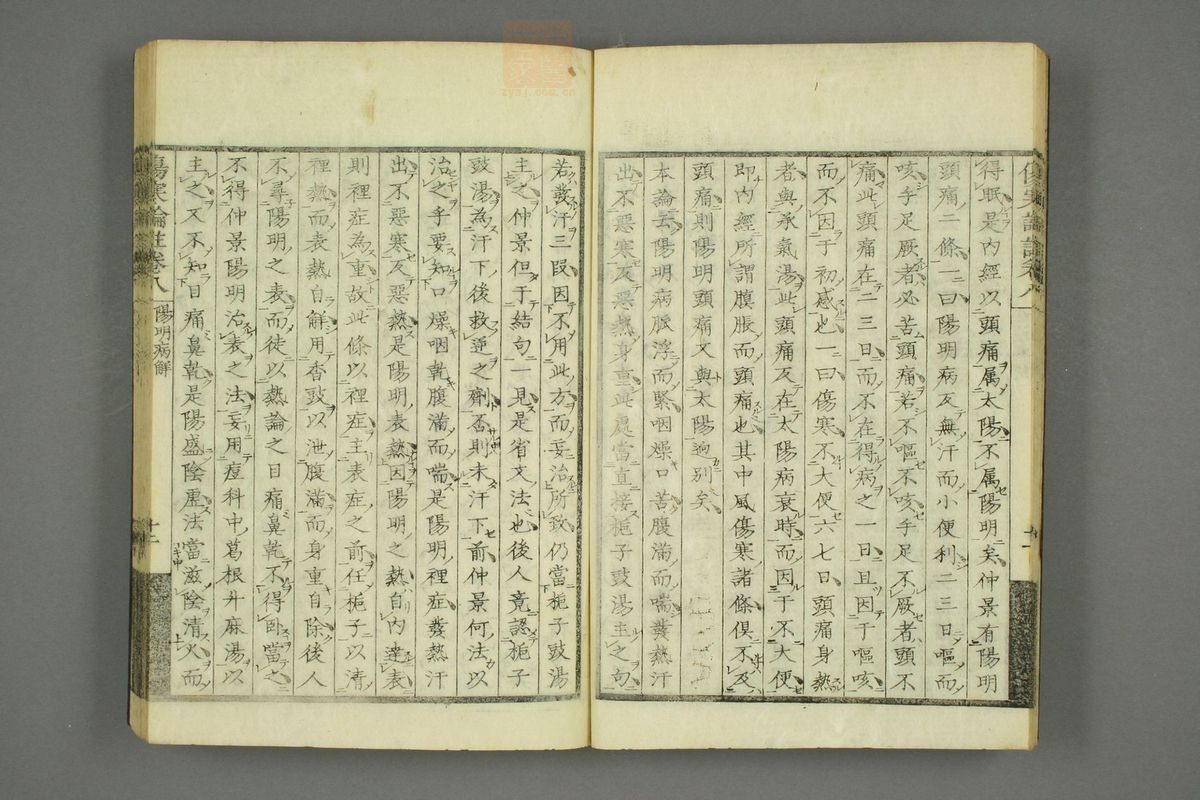 得眠是内經以頭痛属太陽不属陽明矣仲景有陽明
頭痛二條一曰陽明病反無汗而小便利二三日嘔而
咳手足厥者必苦頭痛若不嘔不咳手足不厥者頭不
痛此頭痛在二三日而不在得病之一日且因于嘔咳
而不因于初感也一曰傷寒不大便六七日頭痛身熱
者與承氣湯此頭痛反在太陽病衰時而因于不大便
即内經所謂䐜脹而頭痛也其中風傷寒諸條俱不及
頭痛則陽明頭痛又與太陽迥别矣
本論云陽明病脈浮而緊咽燥口苦腹滿而喘發熱汗
出不惡寒反惡熱身重此處當直接梔子豉湯主之句
若發汗三段因不用此方而妄治所致仍當梔子豉湯
主之仲景但于結句一見是省文法也後人竟認梔子
豉湯為汗下後救逆之劑否則未汗下前仲景何法以
治之乎要知口燥咽乾腹滿而喘是陽明裡症發熱汗
出不惡寒反惡熱是陽明表熱因陽明之熱自内達表
則裡症為重故此條以裡症主表症之前任梔子以清
裡熱而表熱自解用香豉以泄腹滿而身重自除後人
不尋陽明之表而徒以熱論之目痛鼻乾不得卧當之
不得仲景陽明治表之法妄用痘科中葛根升麻湯以
主之又不知目痛鼻乾是陽盛陰虚法當滋陰清火而
傷寒論註卷八
陽明病解
十二
十一
zysj.com.cn